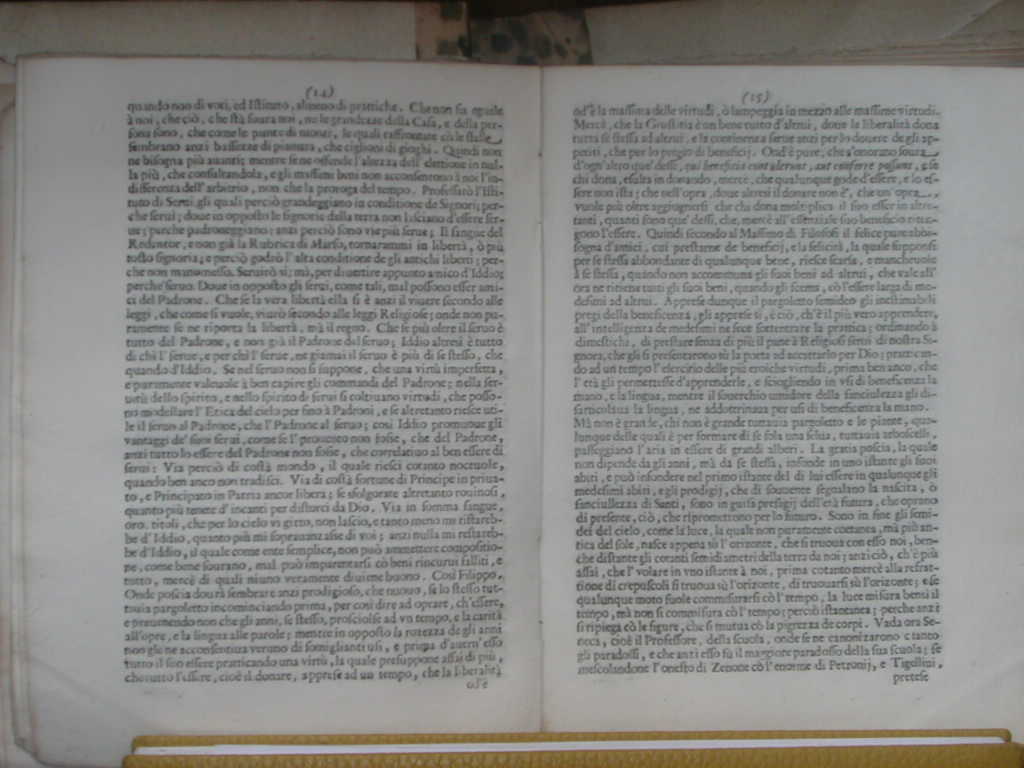 (14)
quando non di voti, ed Istituto, almeno di prattiche. Che non sia eguale
à noi, che ciò, che stà soura noi, ne le grandezze della Casa, e della per-
sona sono, che come le punte di monti, le quali raffrontate cò le stelle
sembrano anzi bassezze di pianura, che ciglioni di gioghi. Quindi non
ne bisogna più auanti; mentre se ne offende l'altezza dell' elettione in nul-
la più, che consultandola, e gli massimi beni non acconsentono à noi l'in-
differenza dell' arbitrio, non che la proroga del tempo. Professarò l'Isti-
tuto di Serui gli quali perciò grandeggiano in conditione de Signori; per-
che serui; doue in opposto le signorie della terra non lasciano d'essere ser-
ue; perche padroneggiano; anzi perciò sono vie più serue; Il sangue del
Redentor, e non già la Rubrica di Marso, tornarammi in libertà, ò più
tosto signoria; e perciò godrò l'alta conditione de gli antichi liberti; per-
che non manomesso. Seruirò sì; mà, per diuenire appunto amico d'Iddio;
perche seruo. Doue in opposto gli serui, come tali, mal possono esser ami-
ci del Padrone. Che se la vera libertà ella si è anzi il viuere secondo alle
leggi, che come si vuole, viurò secondo alle leggi Religiose; onde non pu-
ramente se ne riporta la libertà, mà il regno. Che se più oltre il seruo è
tutto del Padrone, e non già il Padrone del seruo; Iddio altresì è tutto
di chi l' serue, e per chi l' serue, ne giamai il seruo è più di se stesso, che
quando d'Iddio. Se nel seruo non si suppone, che una virtù imperfetta,
e puramente valeuole à ben capire gli commandi del Padrone; nella ser-
uitù dello spirito, e nello spirito di serui si coltiuano virtudi, che posso-
no modellare l' Etica del cielo per fino à Padroni, e se altretanto riesce uti-
le il seruo al Padrone, che l' Padrone al seruo; così Iddio promuoue gli
vantaggi de' suoi serui, come se l' prouento non fosse, che del Padrone,
anzi tutto lo essere del Padrone non fosse, che correlatiuo al ben essere di
serui: Via perciò di costà mondo, il quale riesci cotanto noceuole,
quando ben anco non tradisci. Via di costà fortune di Principe in priua-
to, e Principato in Patria ancor libera; se sfolgorate altretanto rouinosi,
quanto più tenete d' incanti per distorci da Dio. Via in somma sangue,
oro, titoli, che per lo cielo vi gitto, non lascio, e tanto meno mi ristareb-
be d' Iddio, quanto più mi soprauanzasse di voi; anzi nulla mi restareb-
be d'Iddio, il quale come ente semplice, non può ammettere compositio-
ne, come bene sourano, mal può imparentarsi cò beni rincurui falliti, e
tutto, mercè di quali niuno veramente diuiene buono. Così Filippo.
Onde poscia dourà sembrare anzi prodigioso, che nuouo, se lo stesso tut-
tauia pargoletto incominciando prima, per così dire ad oprare, ch'essere,
e preuenendo non che gli anni, se stesso, prosciolse ad vn tempo, e la carità
all'opre, e la lingua alle parole; mentre in opposto la rozezza de gli anni
non gliene acconsentiua veruno di somiglianti usi, e prima d'auer' esso
tutto il suo essere pratticando una virtù, la quale presuppone assai di più,
che tutto l'essere, cioè il donare, apprese ad un tempo, che la liberalità
od'è
(15)
od'è la massima delle virtudi, ò lampeggia in mezzo alle massime virtudi.
Mercè, che la Giustitia è un bene tutto d'altrui, doue la liberalità dona
tutta se stessa ad altrui, e la continenza serue anzi per lo douere de gli ap-
petiti, che per lo pregio di beneficij. Ond'è pure, che s'onorano soura
d'ogn'altro que' dessi, qui beneficia contulerunt, aut conferre possunt, e sì
chi dona, esulta in donando, merce, che qualunque gode d'essere, e lo es-
sere non istà; che nell'opra, doue altresì il donare non è, che un'opra
vuole più oltre aggiugnersi che chi dona moltiplica il suo esser in altre-
tanti, quanti sono que' dessi, che, mercè all'essenziale suo beneficio rite-
gono l'essere. Quindi secondo al Massimo di Filosofi il felice pure abbi-
sogna d'amici, cui prestarne de beneficij, e la felicità, la quale supponsi
per se stessa abbondante di qualunque bene, riesce scarsa, e mancheuole
à se stessa, quando non accommuna gli suoi beni ad altrui, che vale all'
ora ne ritiene tutti gli suoi beni, quando gli scema, cò l'essere larga di me-
desimi ad altrui. Apprese dunque il pargoletto semideo gli inestimabili
pregi della beneficenza, gli apprese sì, e ciò, ch'è il più vero apprendere,
all'intelligenza de medesimi ne fece sottentrare la prattica; ordinando à
dimestichi, di prestare senza di più il pane à Religiosi serui di nostra Si-
gnora, che gli si presentarono sù la porta ad accattarlo per Dio; pratican-
do ad un tempo l'esercitio delle più eroiche virtudi, prima ben anco, che
l'età gli permettesse d'apprenderle, e sciogliendo in vsi di beneficenza la
mano, e la lingua, mentre il souerchio umidore della fanciulezza gli di-
sarticolaua la lingua, ne addottrinaua per usi di beneficenza la mano.
Mà non è grande, chi non è grande tuttauia pargoletto e le piante, qua-
lunque delle quali è per formare di se sola una selua, tuttauia arboscelli,
passeggiano l'aria in essere di grandi alberi. La gratia poscia, la quale
non dipende da gli anni, mà da se stessa, infonde in uno istante gli suoi
abiti, e può infondere nel primo istante del di lui essere in qualunque gli
medesimi abiti, e gli prodigij, che di souente segnalano la nascita, ò
fanciullezza di Santi, sono in guisa presagij dell'età futura, che oprano
di presente, ciò, che ripromettono per lo futuro. Sono in fine gli semi-
dei del cielo, come la luce, la quale non puramente coetanea, mà più an-
tica del sole, nasce appena sù l'orizonte, che si truoua con esso noi, ben-
che distante gli cotanti semidiametri della terra da noi; anzi ciò, ch'è più
assai, che l' volare in vno istante à noi, prima cotanto mercè alla refrat-
tione di crepuscoli si truoua sù l'orizonte, di truouarsi sù l'orizonte; e se
qualunque moto suole commisurarsi cò l' tempo, la luce misura bensì il
tempo, mà non si commisura cò l' tempo; perciò istantanea; perche anzi
si ripiega cò le figure, che si mutua cò la pigrezza de corpi. Vada ora Se-
neca, cioè il Professore, della scuola, onde se ne canonizarono cotanto
gli paradossi, e che anzi esso fù il maggiore paradosso della sua scuola; se
mescolandone l'onesto di Zenone cò l'enorme di Petronij, e Tigellini,
pretese